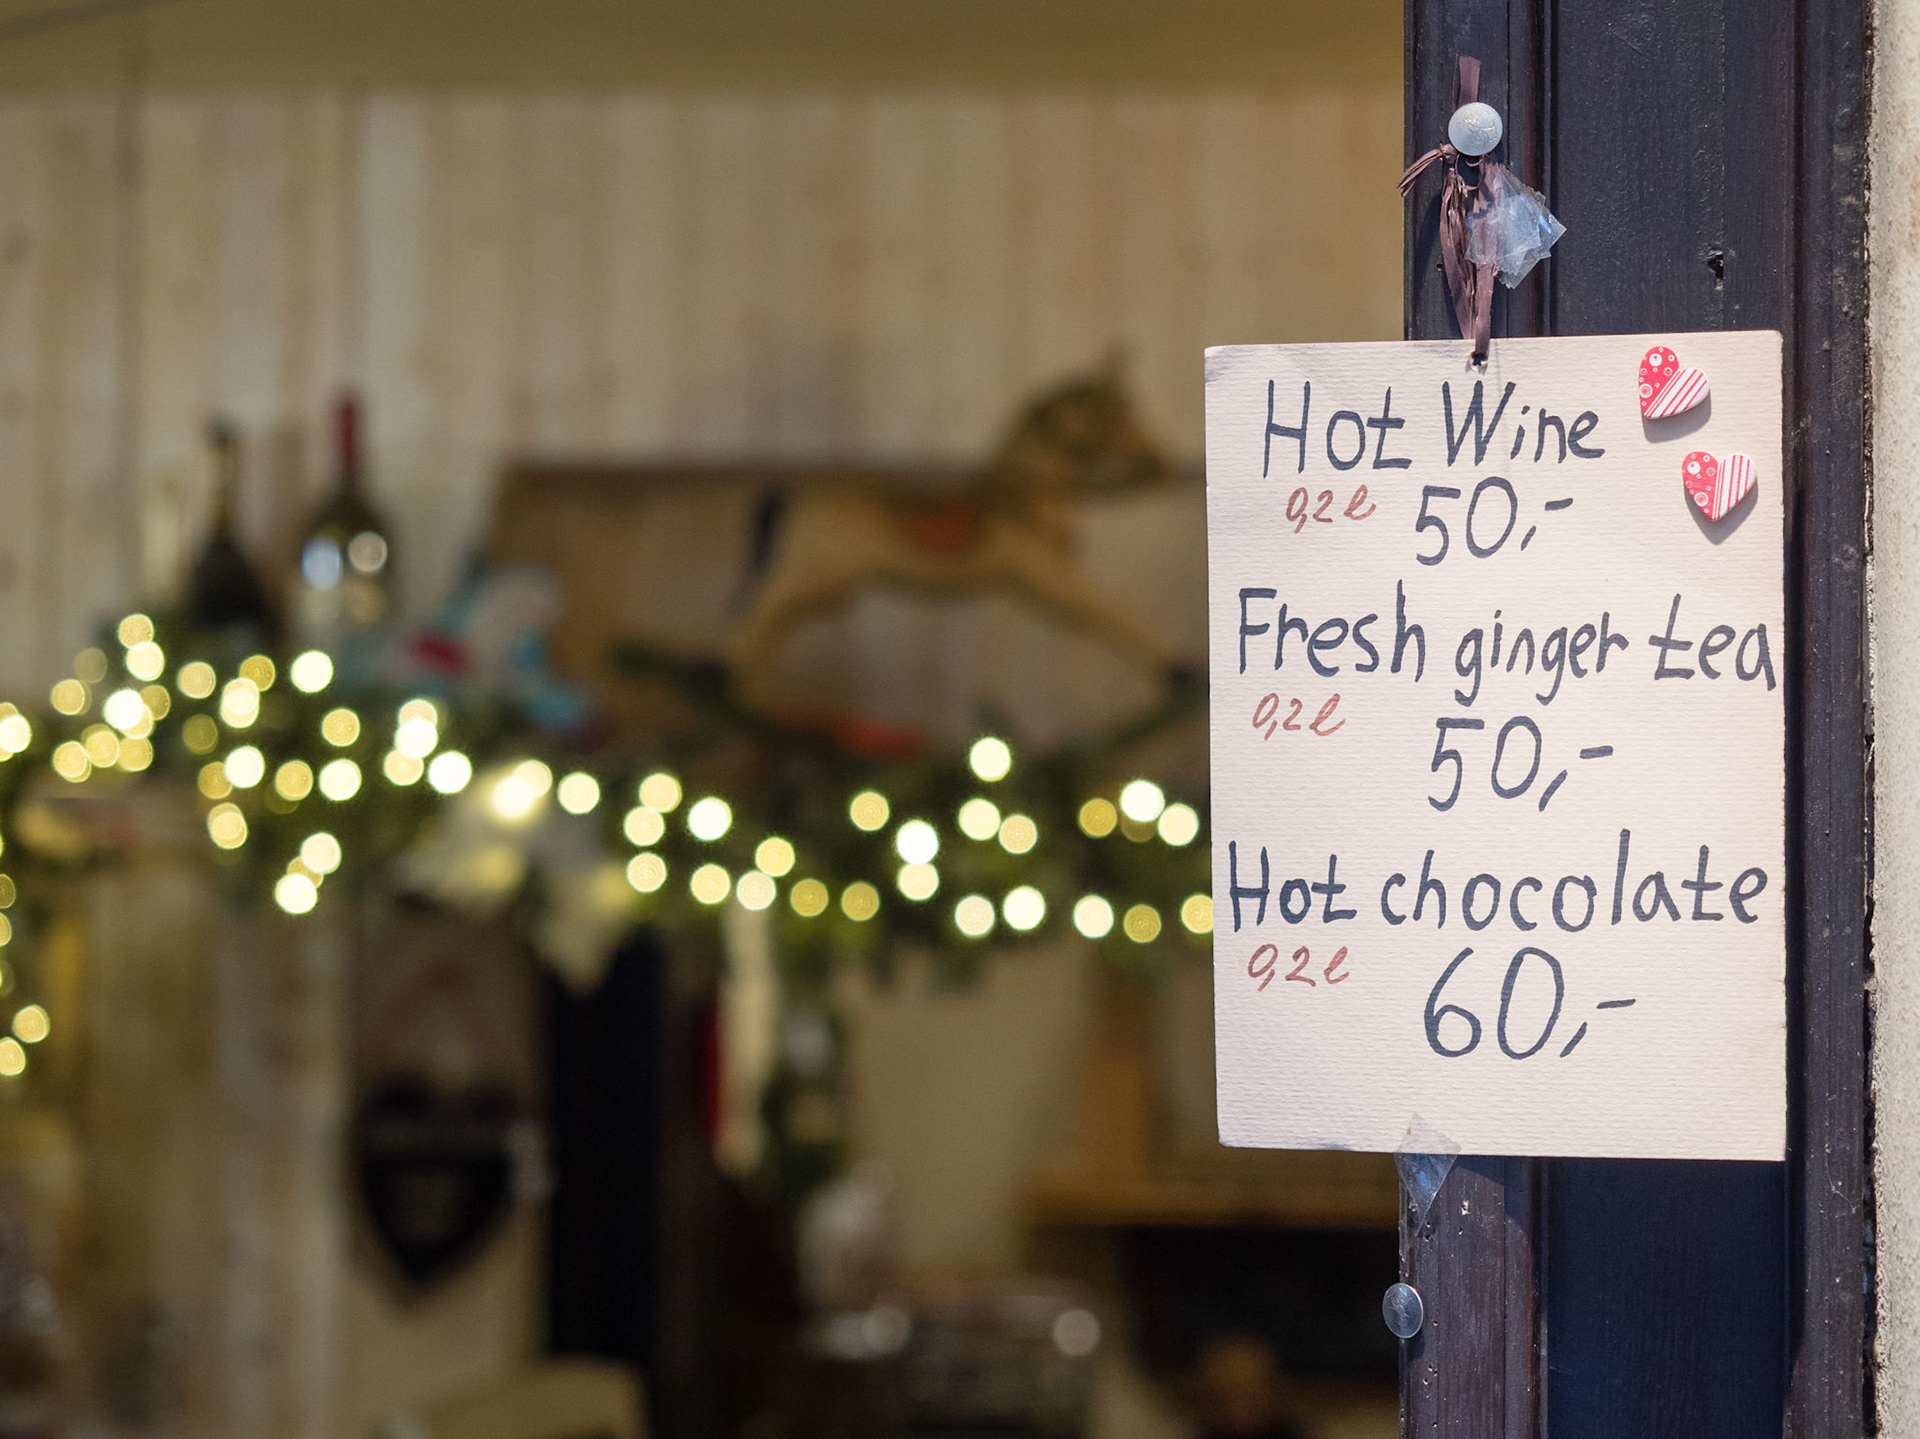 Hot Wine
0,2 l 50,-
Fresh ginger tea
0,2 l 50,-
Hot chocolate
0,2 l 60,-